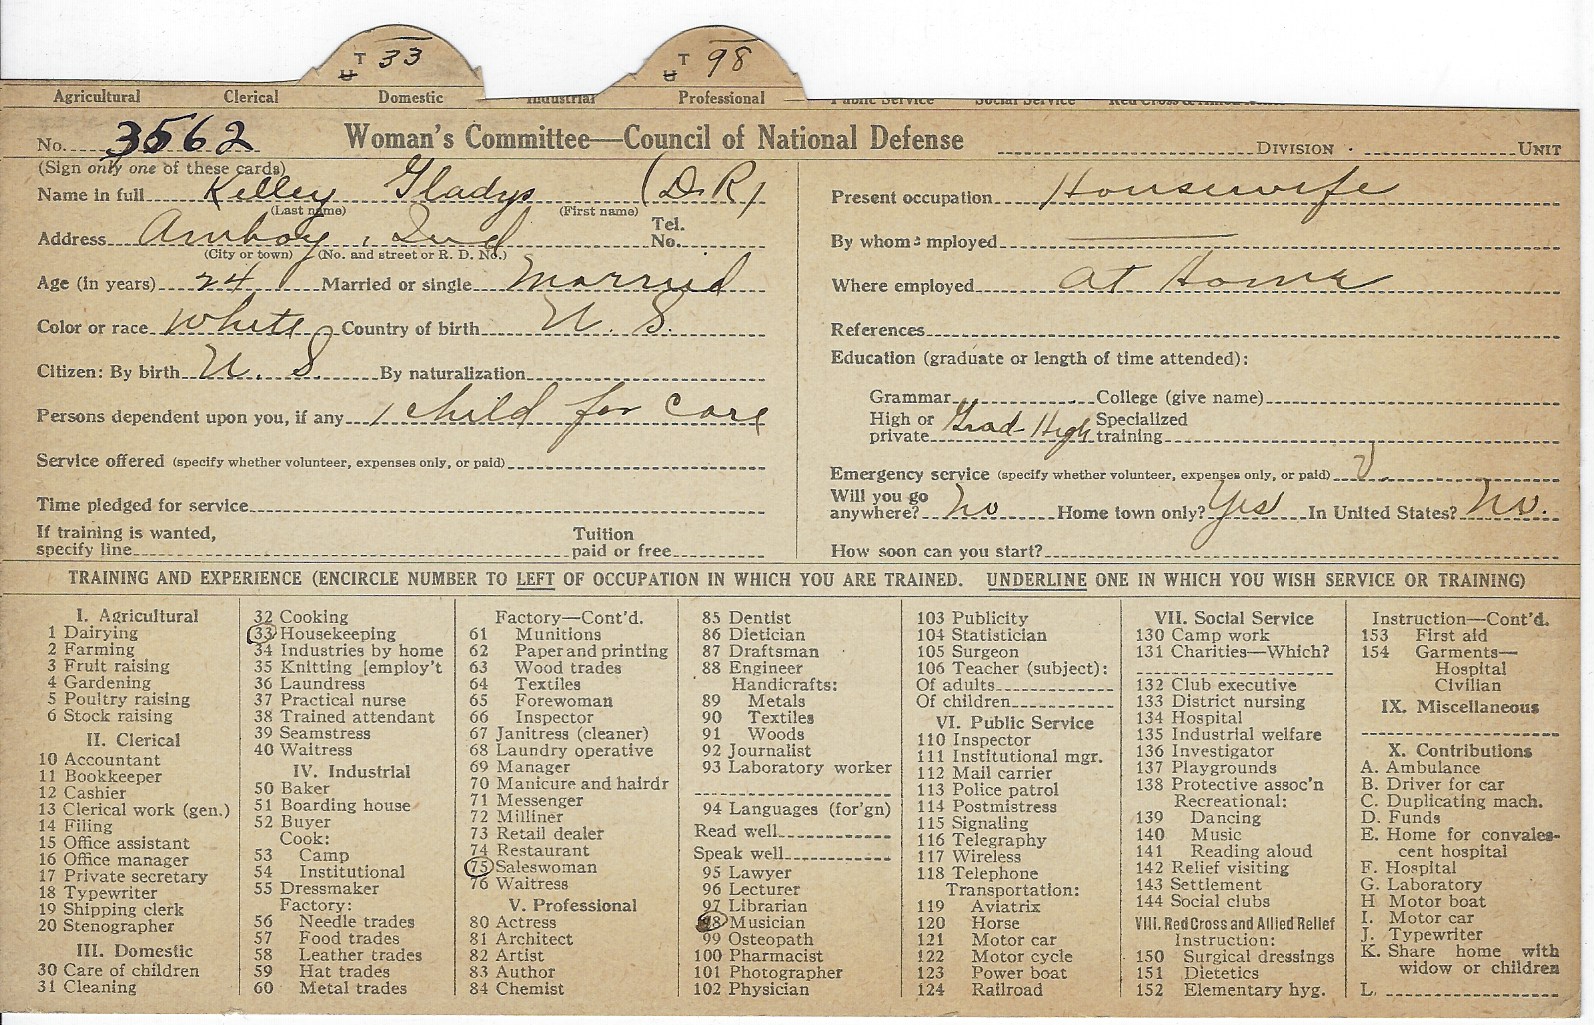 T 33
U
T 98
U
Agricultural Clerical Domestic Industrial Professional Public Service Social Service
No. 3562 Woman's Committee—Council of National Defense DIVISION · UNIT
(Sign only one of these cards)
Name in full Kelley Gladys (D.R)
(Last name) (First name)
Address Amboy, Ind Tel. No.
(City or town) (No. and street or R. D. No.)
Age (in years) 24 Married or single Married
Color or race White Country of birth U. S.
Citizen: By birth U. S. By naturalization
Persons dependent upon you, if any 1 child for care
Service offered (specify whether volunteer, expenses only, or paid)
Time pledged for service
If training is wanted,
specify line Tuition paid or free
Present occupation Housewife
By whom employed
Where employed at Home
References
Education (graduate or length of time attended):
Grammar College (give name)
High or private Grad High Specialized training
Emergency service (specify whether volunteer, expenses only, or paid) V.
Will you go anywhere? No Home town only? Yes In United States? No.
How soon can you start?
TRAINING AND EXPERIENCE (ENCIRCLE NUMBER TO LEFT OF OCCUPATION IN WHICH YOU ARE TRAINED. UNDERLINE ONE IN WHICH YOU WISH SERVICE OR TRAINING)
I. Agricultural
1 Dairying
2 Farming
3 Fruit raising
4 Gardening
5 Poultry raising
6 Stock raising
II. Clerical
10 Accountant
11 Bookkeeper
12 Cashier
13 Clerical work (gen.)
14 Filing
15 Office assistant
16 Office manager
17 Private secretary
18 Typewriter
19 Shipping clerk
20 Stenographer
III. Domestic
30 Care of children
31 Cleaning
32 Cooking
33 Housekeeping
34 Industries by home
35 Knitting [employ't
36 Laundress
37 Practical nurse
38 Trained attendant
39 Seamstress
40 Waitress
IV. Industrial
50 Baker
51 Boarding house
52 Buyer
Cook:
53 Camp
54 Institutional
55 Dressmaker
Factory:
56 Needle trades
57 Food trades
58 Leather trades
59 Hat trades
60 Metal trades
Factory—Cont'd.
61 Munitions
62 Paper and printing
63 Wood trades
64 Textiles
65 Forewoman
66 Inspector
67 Janitress (cleaner)
68 Laundry operative
69 Manager
70 Manicure and hairdr
71 Messenger
72 Milliner
73 Retail dealer
74 Restaurant
75 Saleswoman
76 Waitress
V. Professional
80 Actress
81 Architect
82 Artist
83 Author
84 Chemist
85 Dentist
86 Dietician
87 Draftsman
88 Engineer
Handicrafts:
89 Metals
90 Textiles
91 Woods
92 Journalist
93 Laboratory worker
94 Languages (for'gn)
Read well
Speak well
95 Lawyer
96 Lecturer
97 Librarian
98 Musician
99 Osteopath
100 Pharmacist
101 Photographer
102 Physician
103 Publicity
104 Statistician
105 Surgeon
106 Teacher (subject):
Of adults
Of children
VI. Public Service
110 Inspector
111 Institutional mgr.
112 Mail carrier
113 Police patrol
114 Postmistress
115 Signaling
116 Telegraphy
117 Wireless
118 Telephone
Transportation:
119 Aviatrix
120 Horse
121 Motor car
122 Motor cycle
123 Power boat
124 Railroad
VII. Social Service
130 Camp work
131 Charities—Which?
132 Club executive
133 District nursing
134 Hospital
135 Industrial welfare
136 Investigator
137 Playgrounds
138 Protective assoc'n
Recreational:
139 Dancing
140 Music
141 Reading aloud
142 Relief visiting
143 Settlement
144 Social clubs
VIII. Red Cross and Allied Relief
Instruction:
150 Surgical dressings
151 Dietetics
152 Elementary hyg.
Instruction—Cont'd.
153 First aid
154 Garments—
Hospital
Civilian
IX. Miscellaneous
X. Contributions
A. Ambulance
B. Driver for car
C. Duplicating mach.
D. Funds
E. Home for convales-
cent hospital
F. Hospital
G. Laboratory
H Motor boat
I. Motor car
J. Typewriter
K. Share home with
widow or children
L.